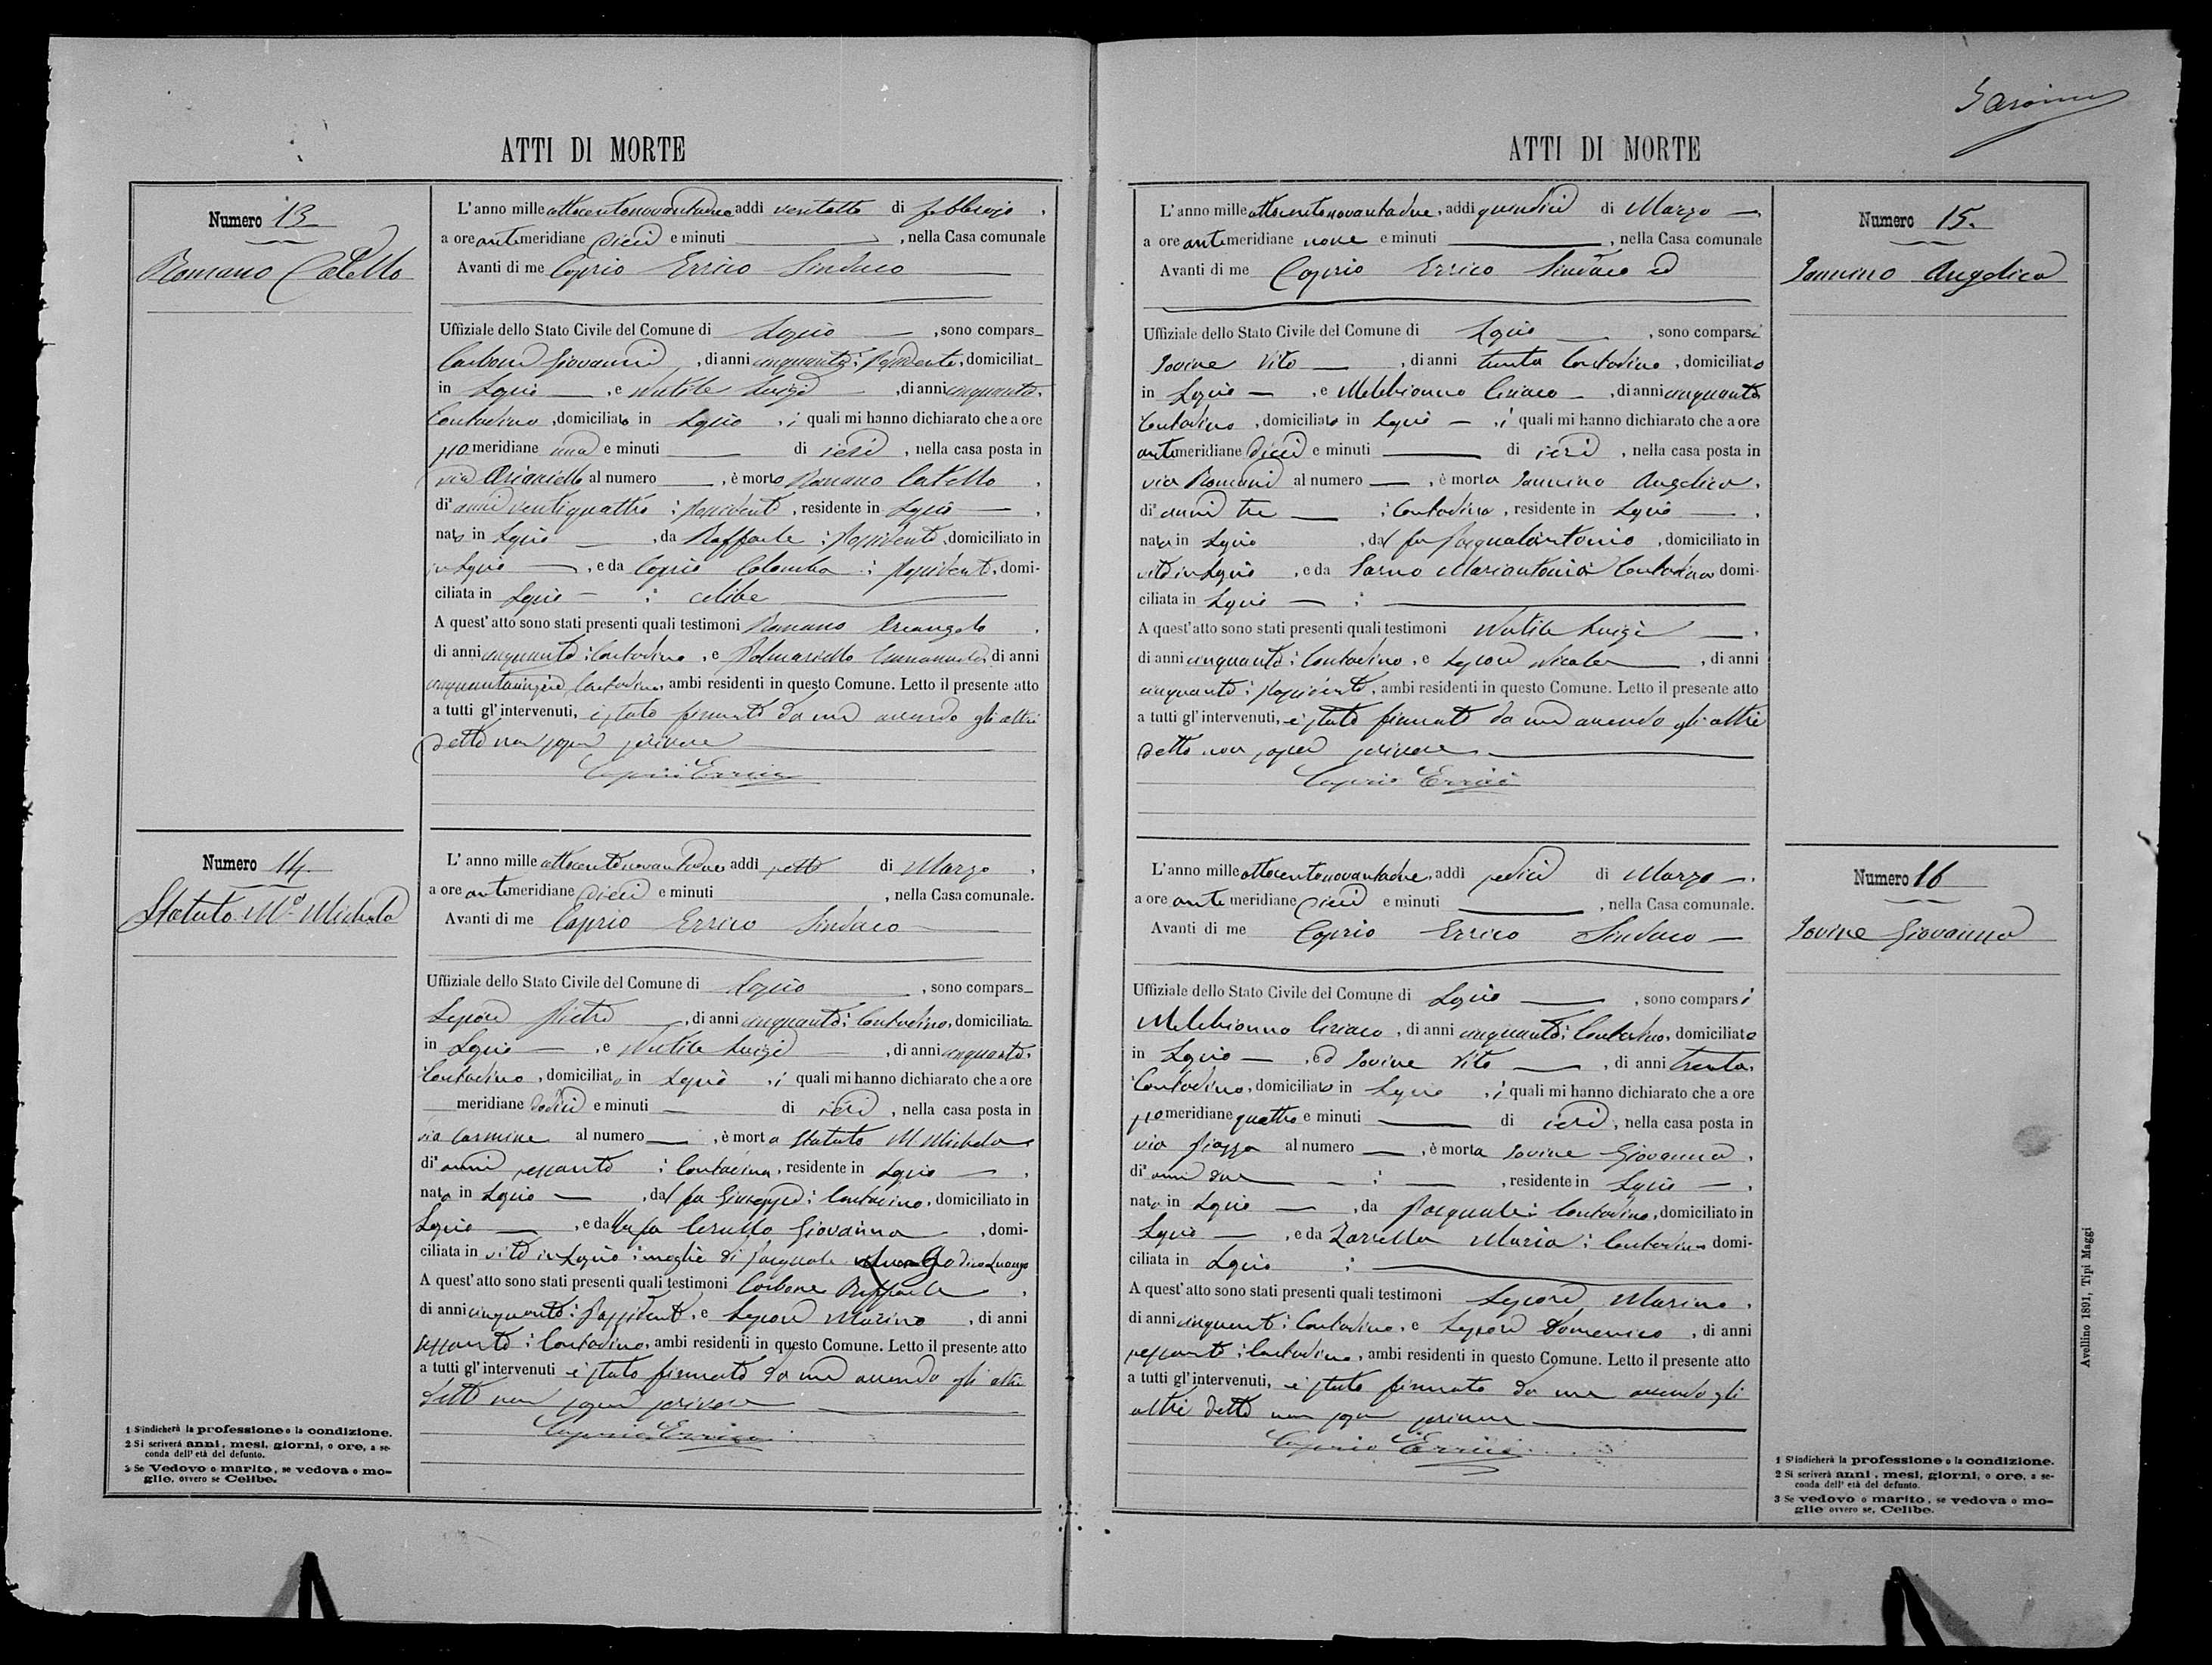 ATTI DI MORTE
Numero 13
Romano Catello
L'anno mille ottocentonovantadue addì ventotto di febbraio,
a ore antemeridiane dieci e minuti, nella Casa comunale
Avanti di me Caprio Errico Sindaco
Uffiziale dello Stato Civile del Comune di Lapio, sono compars_
Carbone Giovanni, di anni cinquanta; Possidente, domiciliat_
in Lapio, e Nutile Luigi, di anni cinquanta,
Contadino, domiciliato in Lapio, i quali mi hanno dichiarato che a ore
po meridiane una e minuti di ieri, nella casa posta in
via al numero, è morto Romano Catello,
di² anni ventiquattro; possidente, residente in Lapio,
nato in Lapio, da Raffaele; possidente, domiciliato in
in Lapio, e da Caprio Colomba; possidente, domi-
ciliata in Lapio; celibe
A quest'atto sono stati presenti quali testimoni Romano Arcangelo,
di anni cinquanta; Contadino, e Palmariello di anni
Contadino, ambi residenti in questo Comune. Letto il presente atto
a tutti gl'intervenuti, è stato firmato da me avendo gli altri
detto non saper scrivere
Caprio Errico
Numero 14.
Statuto Mª Michela
L'anno mille ottocentonovantadue addì sette di Marzo,
a ore antemeridiane dieci e minuti, nella Casa comunale.
Avanti di me Caprio Errico Sindaco
Uffiziale dello Stato Civile del Comune di Lapio, sono compars_
Lepore Pietro, di anni cinquanta; Contadino, domiciliato
in Lapio, e Nutile Luigi, di anni cinquanta,
Contadino, domiciliato in Lapio, i quali mi hanno dichiarato che a ore
meridiane dodici e minuti di ieri, nella casa posta in
via Carmine al numero, è morta Statuto M Michela
di² anni sessanta; Contadina, residente in Lapio,
nata in Lapio, dal fu Giuseppe; Contadino, domiciliato in
Lapio, e dalla fu Cerullo Giovanna, domi-
ciliata in vita in Lapio; moglie di Pasquale
A quest'atto sono stati presenti quali testimoni Carbone Raffaele,
di anni cinquanta; Possidente, e Lepore Marino, di anni
sessanta; Contadino, ambi residenti in questo Comune. Letto il presente atto
a tutti gl'intervenuti è stato firmato da me avendo gli altri
detto non saper scrivere
Caprio Errico
1 S'indicherà la professione o la condizione.
2 Si scriverà anni, mesi, giorni, o ore, a se-
conda dell'età del defunto.
3 Se Vedovo o marito, se vedova o mo-
glie, ovvero se Celibe.
ATTI DI MORTE
Numero 15.
Iannino Angelica
L'anno mille ottocentonovantadue, addì quindici di Marzo,
a ore antemeridiane nove e minuti, nella Casa comunale
Avanti di me Caprio Errico Sindaco ed
Uffiziale dello Stato Civile del Comune di Lapio, sono comparsi
Iovine Vito, di anni trenta Contadino, domiciliato
in Lapio, e Melchionno Ciriaco, di anni cinquanta
Contadino, domiciliato in Lapio, i quali mi hanno dichiarato che a ore
antemeridiane dieci e minuti di ieri, nella casa posta in
via Romani al numero, è morta Iannino Angelica,
di² anni tre; Contadina, residente in Lapio,
nata in Lapio, dal fu Pasqualantonio, domiciliato in
vita in Lapio, e da Sarno Mariantonia Contadina domi-
ciliata in Lapio;
A quest'atto sono stati presenti quali testimoni Nutile Luigi,
di anni cinquanta; Contadino, e Lepore Nicola, di anni
cinquanta; possidente, ambi residenti in questo Comune. Letto il presente atto
a tutti gl'intervenuti, è stato firmato da me avendo gli altri
detto non saper scrivere
Caprio Errico
Numero 16
Iovine Giovanna
L'anno mille ottocentonovantadue, addì sedici di Marzo,
a ore antemeridiane dieci e minuti, nella Casa comunale.
Avanti di me Caprio Errico Sindaco
Uffiziale dello Stato Civile del Comune di Lapio, sono comparsi
Melchionno Ciriaco, di anni cinquanta; Contadino, domiciliato
in Lapio, ed Iovine Vito, di anni trenta,
Contadino, domiciliato in Lapio, i quali mi hanno dichiarato che a ore
pomeridiane quattro e minuti di ieri, nella casa posta in
via Piazza al numero, è morta Iovine Giovanna,
di² anni due;, residente in Lapio,
nata in Lapio, da Pasquale; Contadino, domiciliato in
Lapio, e da Zarrella Maria; Contadina domi-
ciliata in Lapio;
A quest'atto sono stati presenti quali testimoni Lepore Marino,
di anni cinquanta; Contadino, e Lepore Domenico, di anni
sessanta; Contadino, ambi residenti in questo Comune. Letto il presente atto
a tutti gl'intervenuti, è stato firmato da me avendo gli
altri detto non saper scrivere
Caprio Errico
1 S'indicherà la professione o la condizione.
2 Si scriverà anni, mesi, giorni, o ore, a se-
conda dell'età del defunto.
3 Se vedovo o marito, se vedova o mo-
glie ovvero se, Celibe.
Avellino 1891, Tipi Maggi